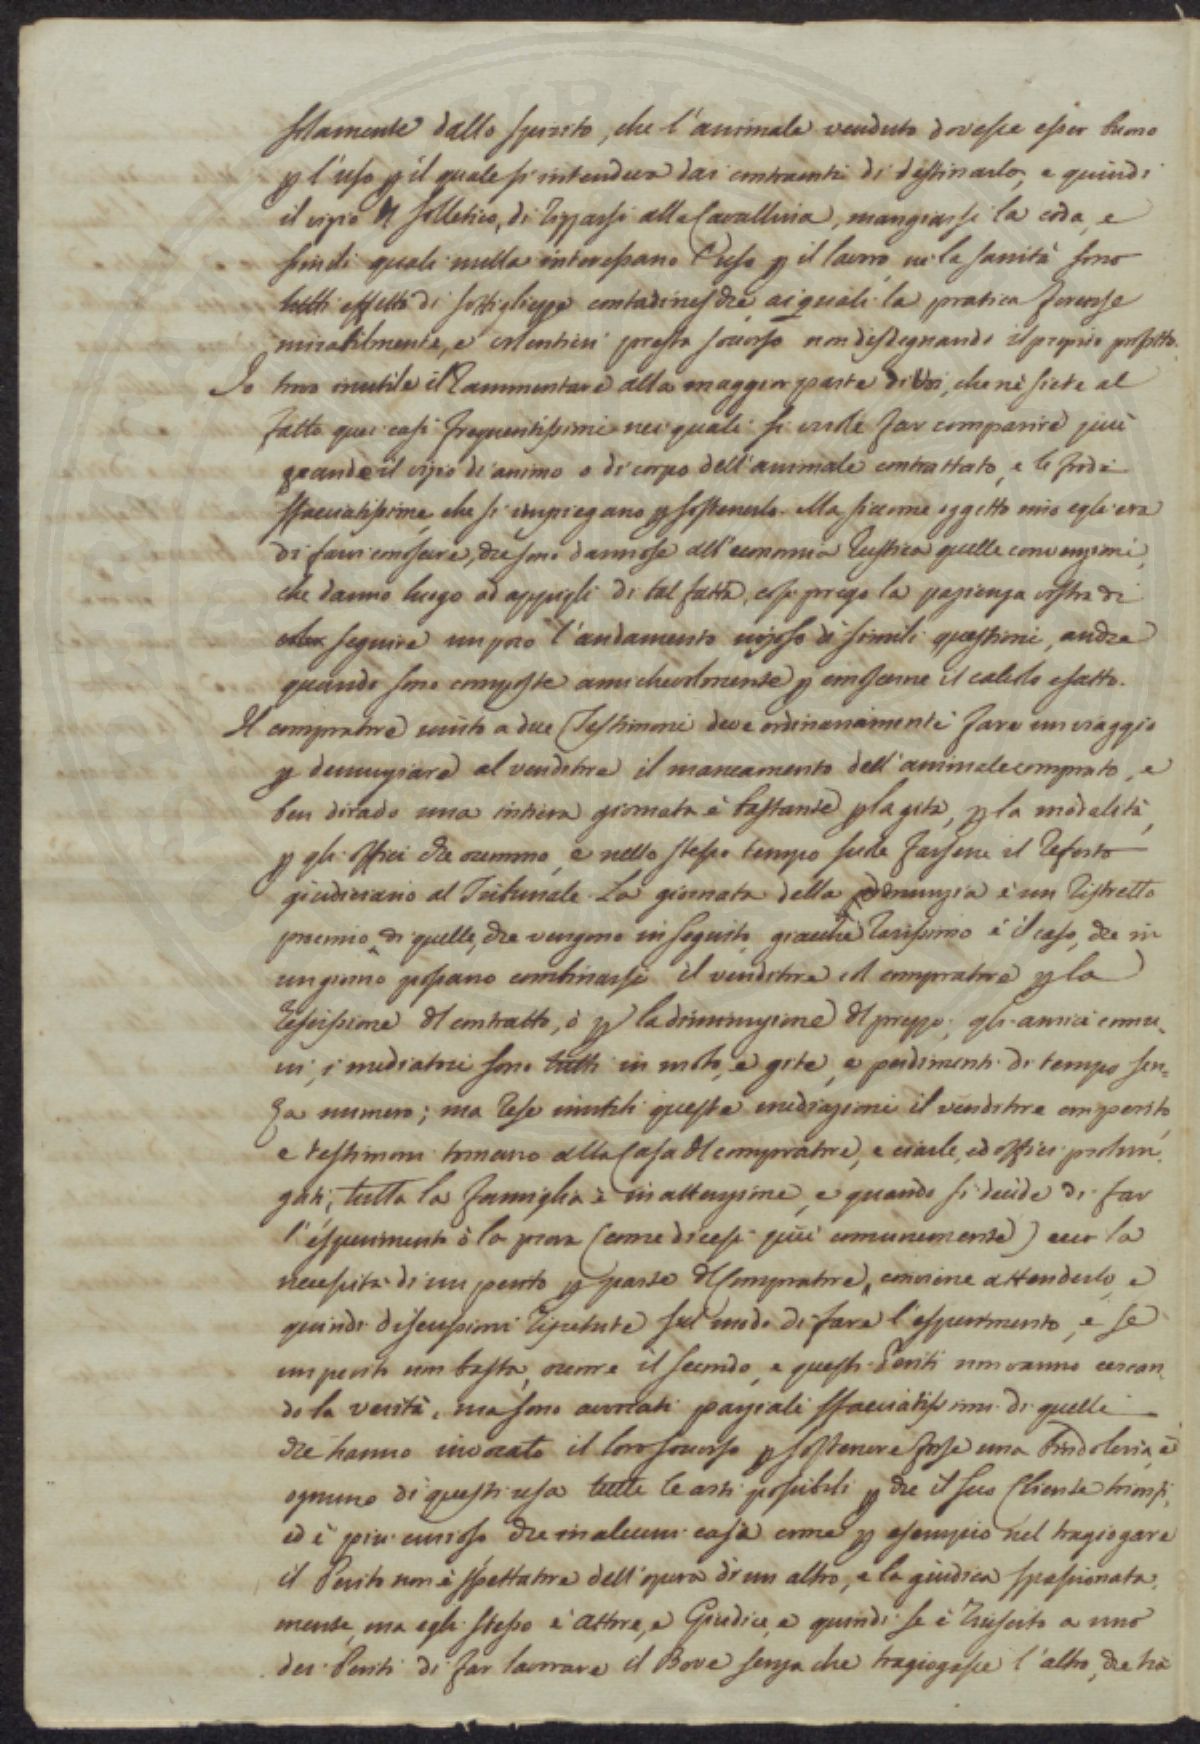 solamente dallo spirito, che l'animale venduto dovesse esser buono
p l'uso p il quale s'intendeva dai contraenti di destinarlo, e quindi
il vizio del solletico, di rizzarsi alla Cavallina, mangiarsi la coda, e
simili quali nulla interessano l'uso p il lavoro, ne la sanità sono
tutti effetti di sottigliezze contadinesche, ai quali la pratica Forense
mirabilmente, e volentieri presta soccorso non disdegnando il proprio profitto.
Io trovo inutile il rammentare alla maggior parte di Voi, che nè siete al
fatto quei casi frequentissimi nei quali si vuole far comparire più
grande il vizio di animo o di corpo dell'animale contrattato, e le frodi
sfacciatissime che si impiegano p sostenerlo. Ma siccome oggetto mio egli era
di farvi conoscere, che sono dannose all'economia rustica quelle convenzioni,
che danno luogo ad appigli di tal fatta, così prego la pazienza vostra di
seguire un poco l'andamento nojoso di simili questioni, anche
quando sono composte amichevolmente p conoscerne il calcolo esatto.
Il compratore unito a due Testimoni deve ordinariamente fare un viaggio
p denunziare al venditore il mancamento dell'animale comprato, e
ben dirado una intiera giornata è bastante p la gita, p la modalità,
p gli offici che occorrono, e nello stesso tempo suole farsene il referto
giudiciario al Tribunale. La giornata della denunzia è un ristretto
proemio di quelle, che vengono in seguito, giacchè rarissimo è il caso, che in
un giorno possano combinarsi il venditore ed compratore p la
rescissione del contratto, ò p la diminuzione del prezzo; gli amici comu-
ni, i mediatori sono tutti in moto, e gite, e perdimenti di tempo sen-
za numero; ma rese inutili queste mediazioni il venditore con perito,
e testimoni tornano alla Casa del compratore, e ciarle, ed offici prolun-
gati, tutta la famiglia è in attenzione, e quando si decide di far
l'esperimento ò la prova (come dicesi più comunemente) ecco la
necessità di un perito p parte del Compratore, conviene attenderlo, e
quindi discussioni ripetute sul modo di fare l'esperimento, e se
un perito non basta, occorre il secondo, e questi Periti non vanno cercan-
do la verità, ma sono avvocati parziali sfacciatissimi di quelli
che hanno invocato il loro soccorso p sostenere forse una Bindoleria, e
ognuno di questi usa tutte le arti possibili p che il suo Cliente trionfi,
ed è più curioso che in alcuni casi come p esempio nel tragiogare
il Perito non è spettatore dell'opera di un altro, e la giudica spassionata-
mente, ma egli stesso è Attore, e Giudice, e quindi se è riuscito a uno
dei Periti di far lavorare il Bove senza che tragiogasse l'altro, che hà